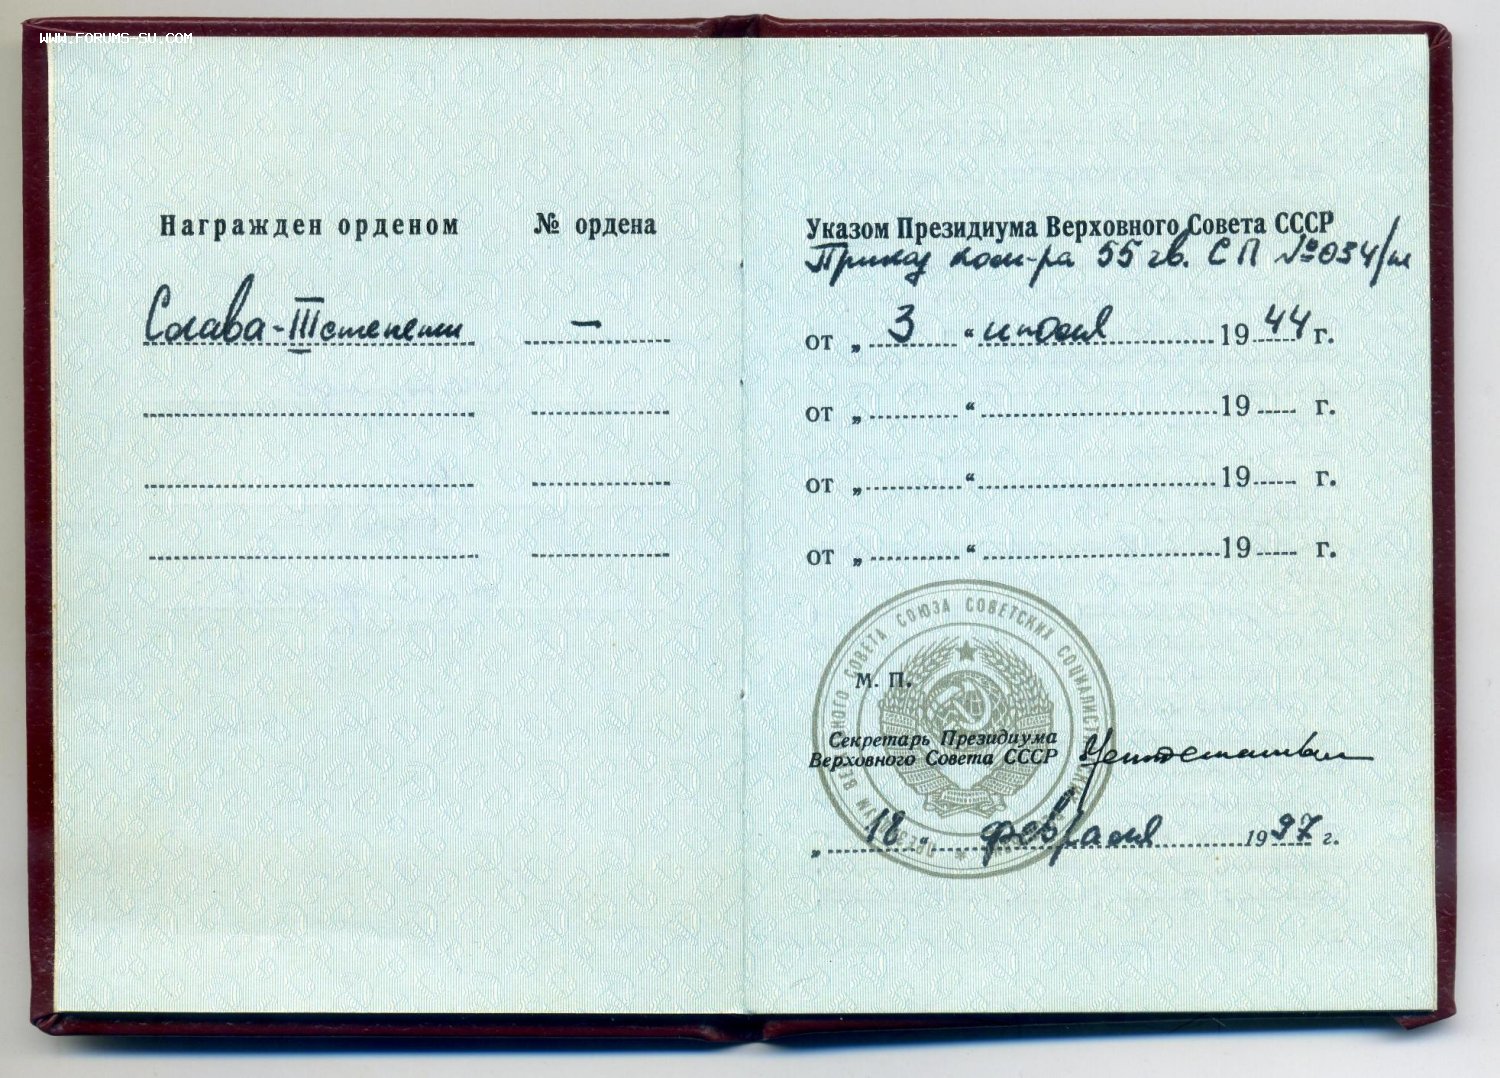 WWW.FORUMS-SU.COM
Награжден орденом № ордена
Слава-III степени —
Указом Президиума Верховного Совета СССР
Приказ ком-ра 55 гв. СП №034/н
от „ 3 “ июля 1944 г.
от „ “ 19 г.
от „ “ 19 г.
от „ “ 19 г.
ПРЕЗИДИУМ ВЕРХОВНОГО СОВЕТА СОЮЗА СОВЕТСКИХ СОЦИАЛИСТИЧЕСКИХ
М. П.
Секретарь Президиума
Верховного Совета СССР
„ 18 “ февраля 1997 г.